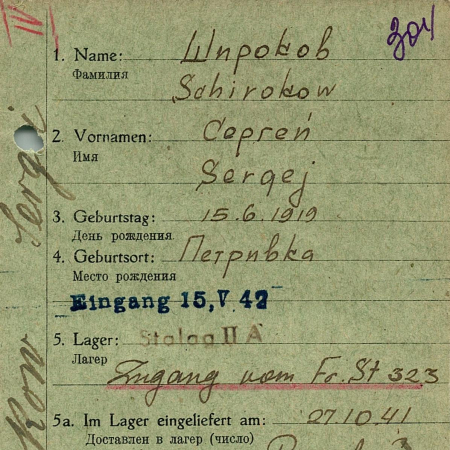 IV
304
1. Name: Широков
Фамилия
Schirokow
2. Vornamen: Сергей
Имя
Sergej
3. Geburtstag: 15.6.1919
День рождения
4. Geburtsort: Петривка
Место рождения
Eingang 15. V. 42
5. Lager: Stalag II A
Лагерь
Zugang vom Fr. St 323
5a. Im Lager eingeliefert am: 27.10.41
Доставлен в лагерь (число)
kow Sergi